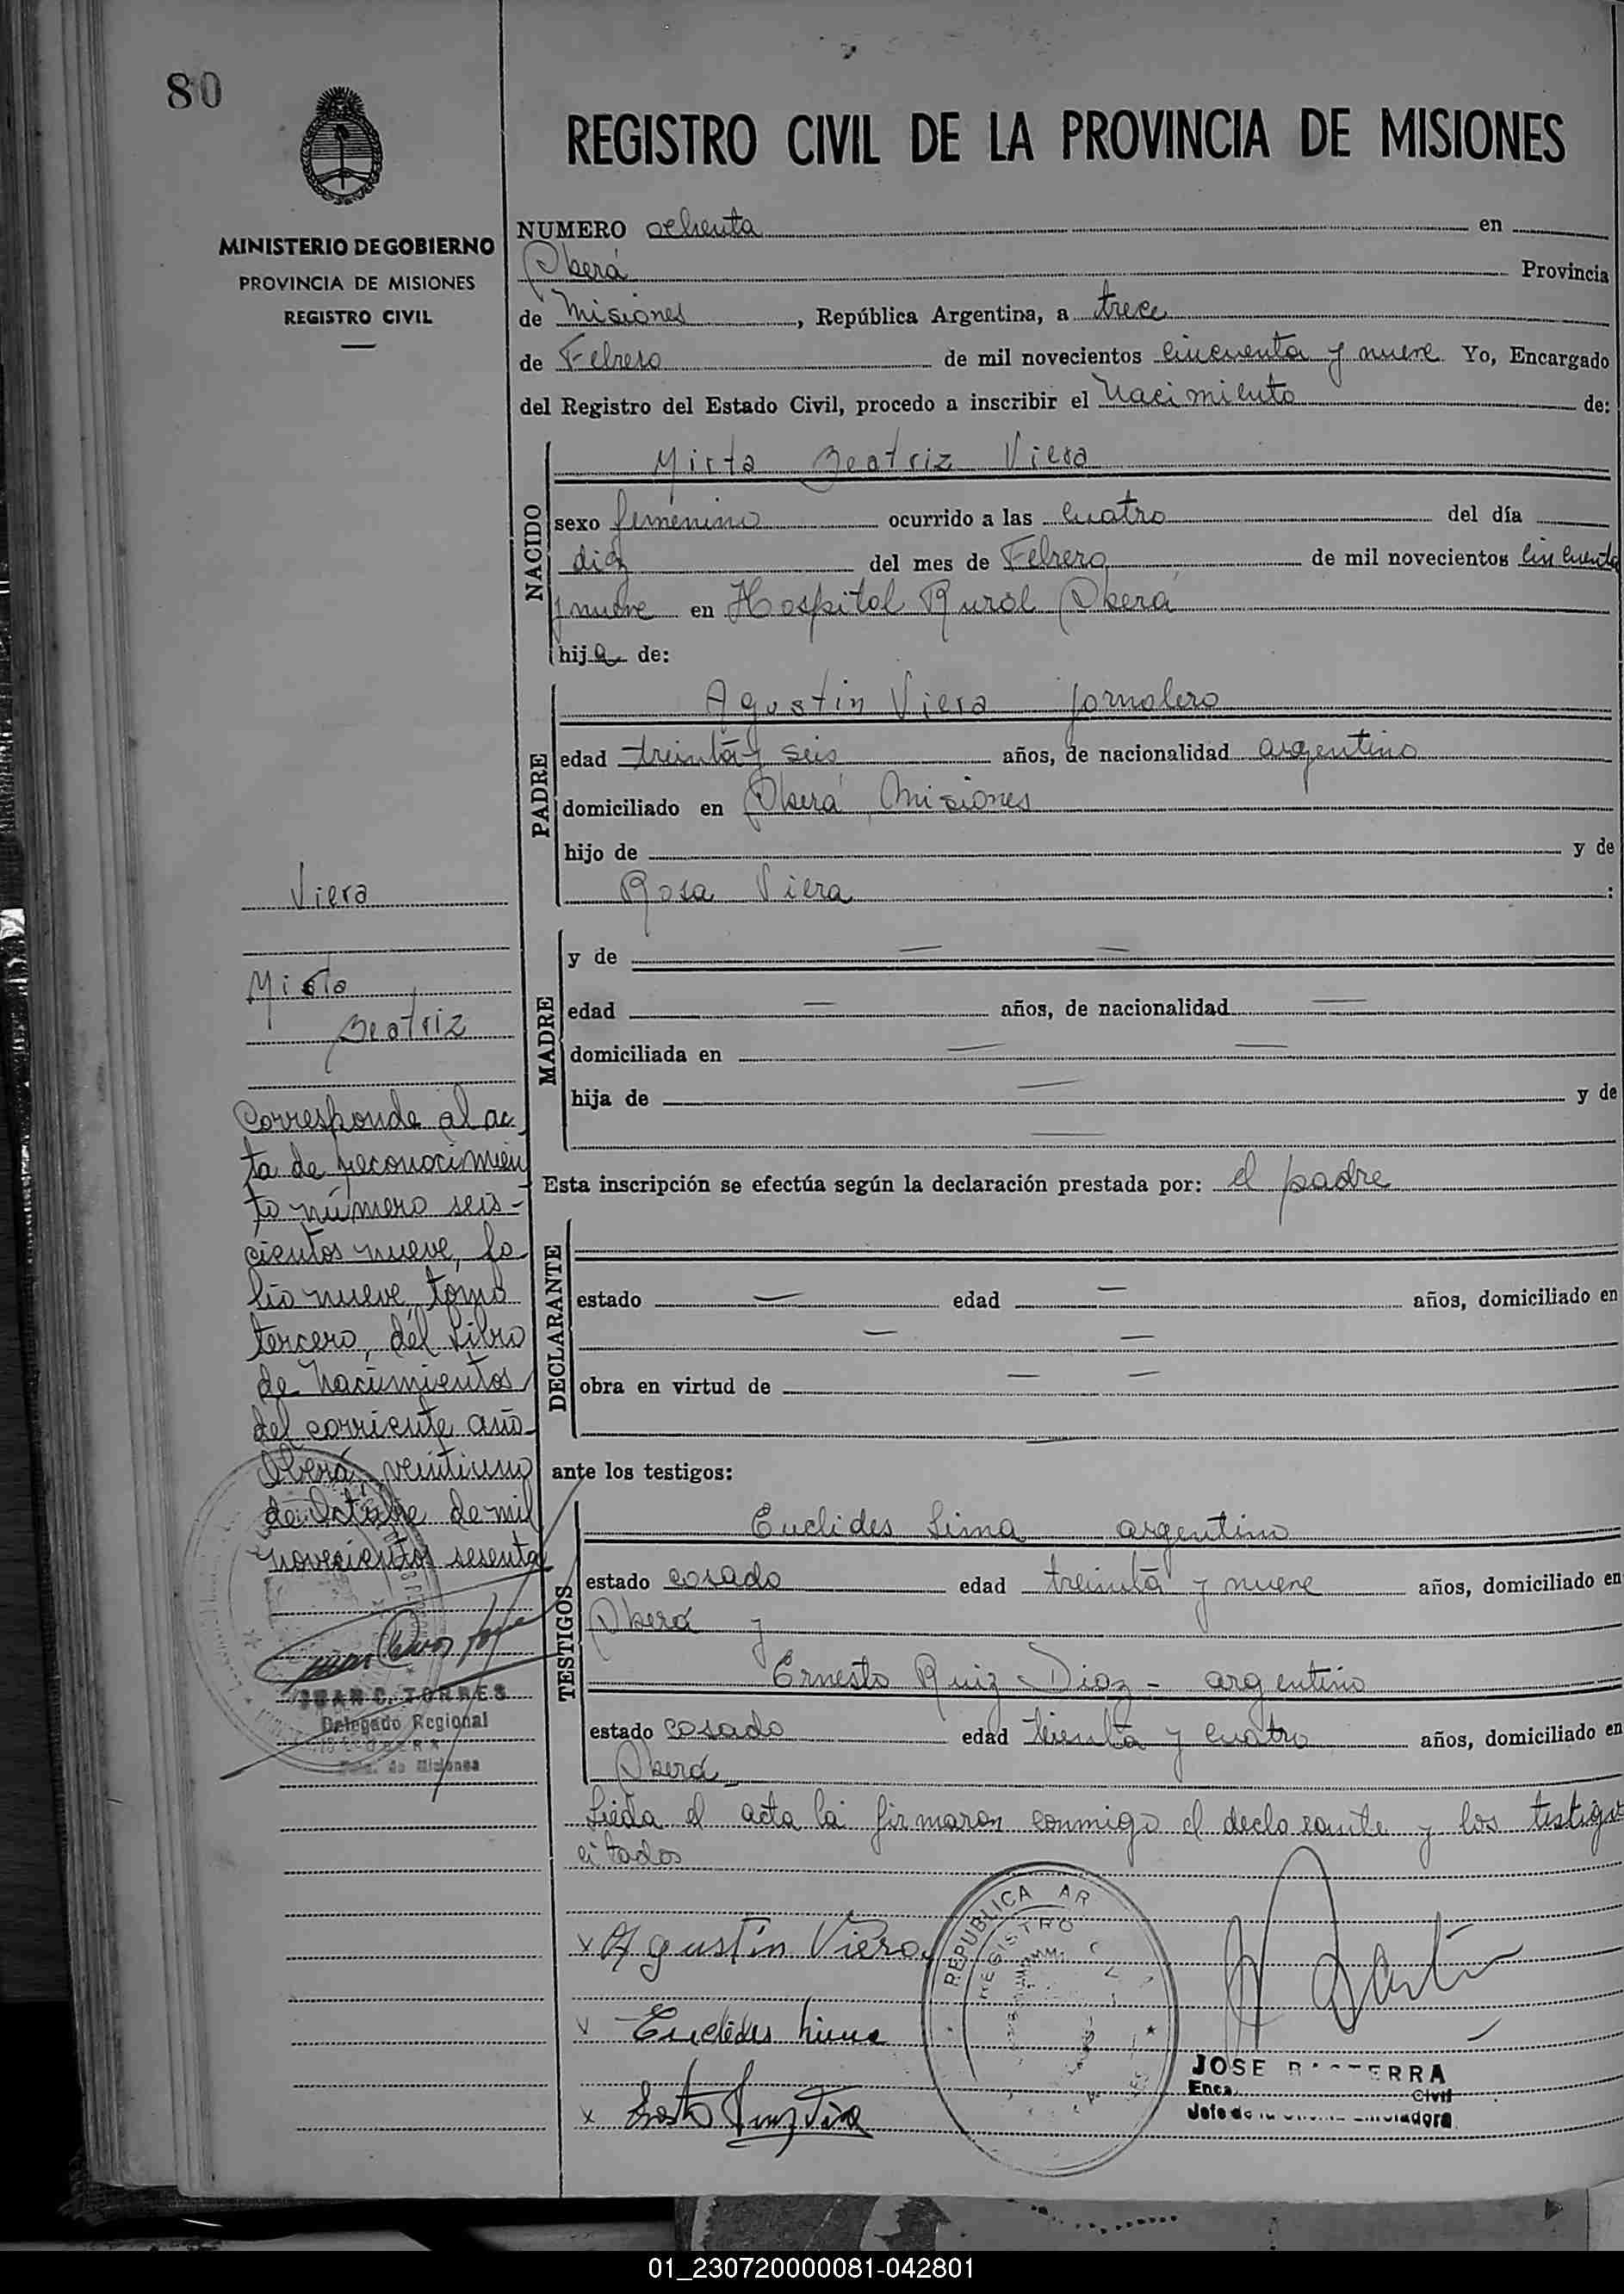 80
MINISTERIO DE GOBIERNO
PROVINCIA DE MISIONES
REGISTRO CIVIL
REGISTRO CIVIL DE LA PROVINCIA DE MISIONES
NUMERO ochenta en
Oberá Provincia
de Misiones, República Argentina, a trece
de Febrero de mil novecientos cincuenta y nueve Yo, Encargado
del Registro del Estado Civil, procedo a inscribir el Nacimiento de:
NACIDO
Mirta Beatriz Viera
sexo femenino ocurrido a las cuatro del día
diez del mes de Febrero de mil novecientos cincuenta
y nueve en Hospital Rural Oberá
hija de:
PADRE
Agustin Viera jornalero
edad treinta y seis años, de nacionalidad argentino
domiciliado en Oberá Misiones
hijo de y de
Rosa Viera :
MADRE
y de — —
edad — años, de nacionalidad —
domiciliada en — —
hija de — y de
—
Esta inscripción se efectúa según la declaración prestada por: el padre
DECLARANTE
estado — edad — años, domiciliado en
— —
obra en virtud de — —
—
ante los testigos:
TESTIGOS
Euclides Lima argentino
estado casado edad treinta y nueve años, domiciliado en
Oberá y
Ernesto Ruiz Diaz - argentino
estado casado edad treinta y cuatro años, domiciliado en
Oberá -
Leida el acta la firmaron conmigo el declarante y los testigos
citados
x Agustin Viera
Euclides Lima
x
REPUBLICA AR
REGISTRO
JOSE
Civil
Viera
Mirta
Beatriz
Corresponde al ac
ta de reconocimien
to número seis-
cientos nueve, fo
lio nueve, tomo
tercero, del Libro
de Nacimientos
del corriente año
Oberá, veintiuno
de Octubre de mil
novecientos sesenta
JUAN C. TORRES
Delegado Regional
OBERA
de Misiones
01_230720000081-042801